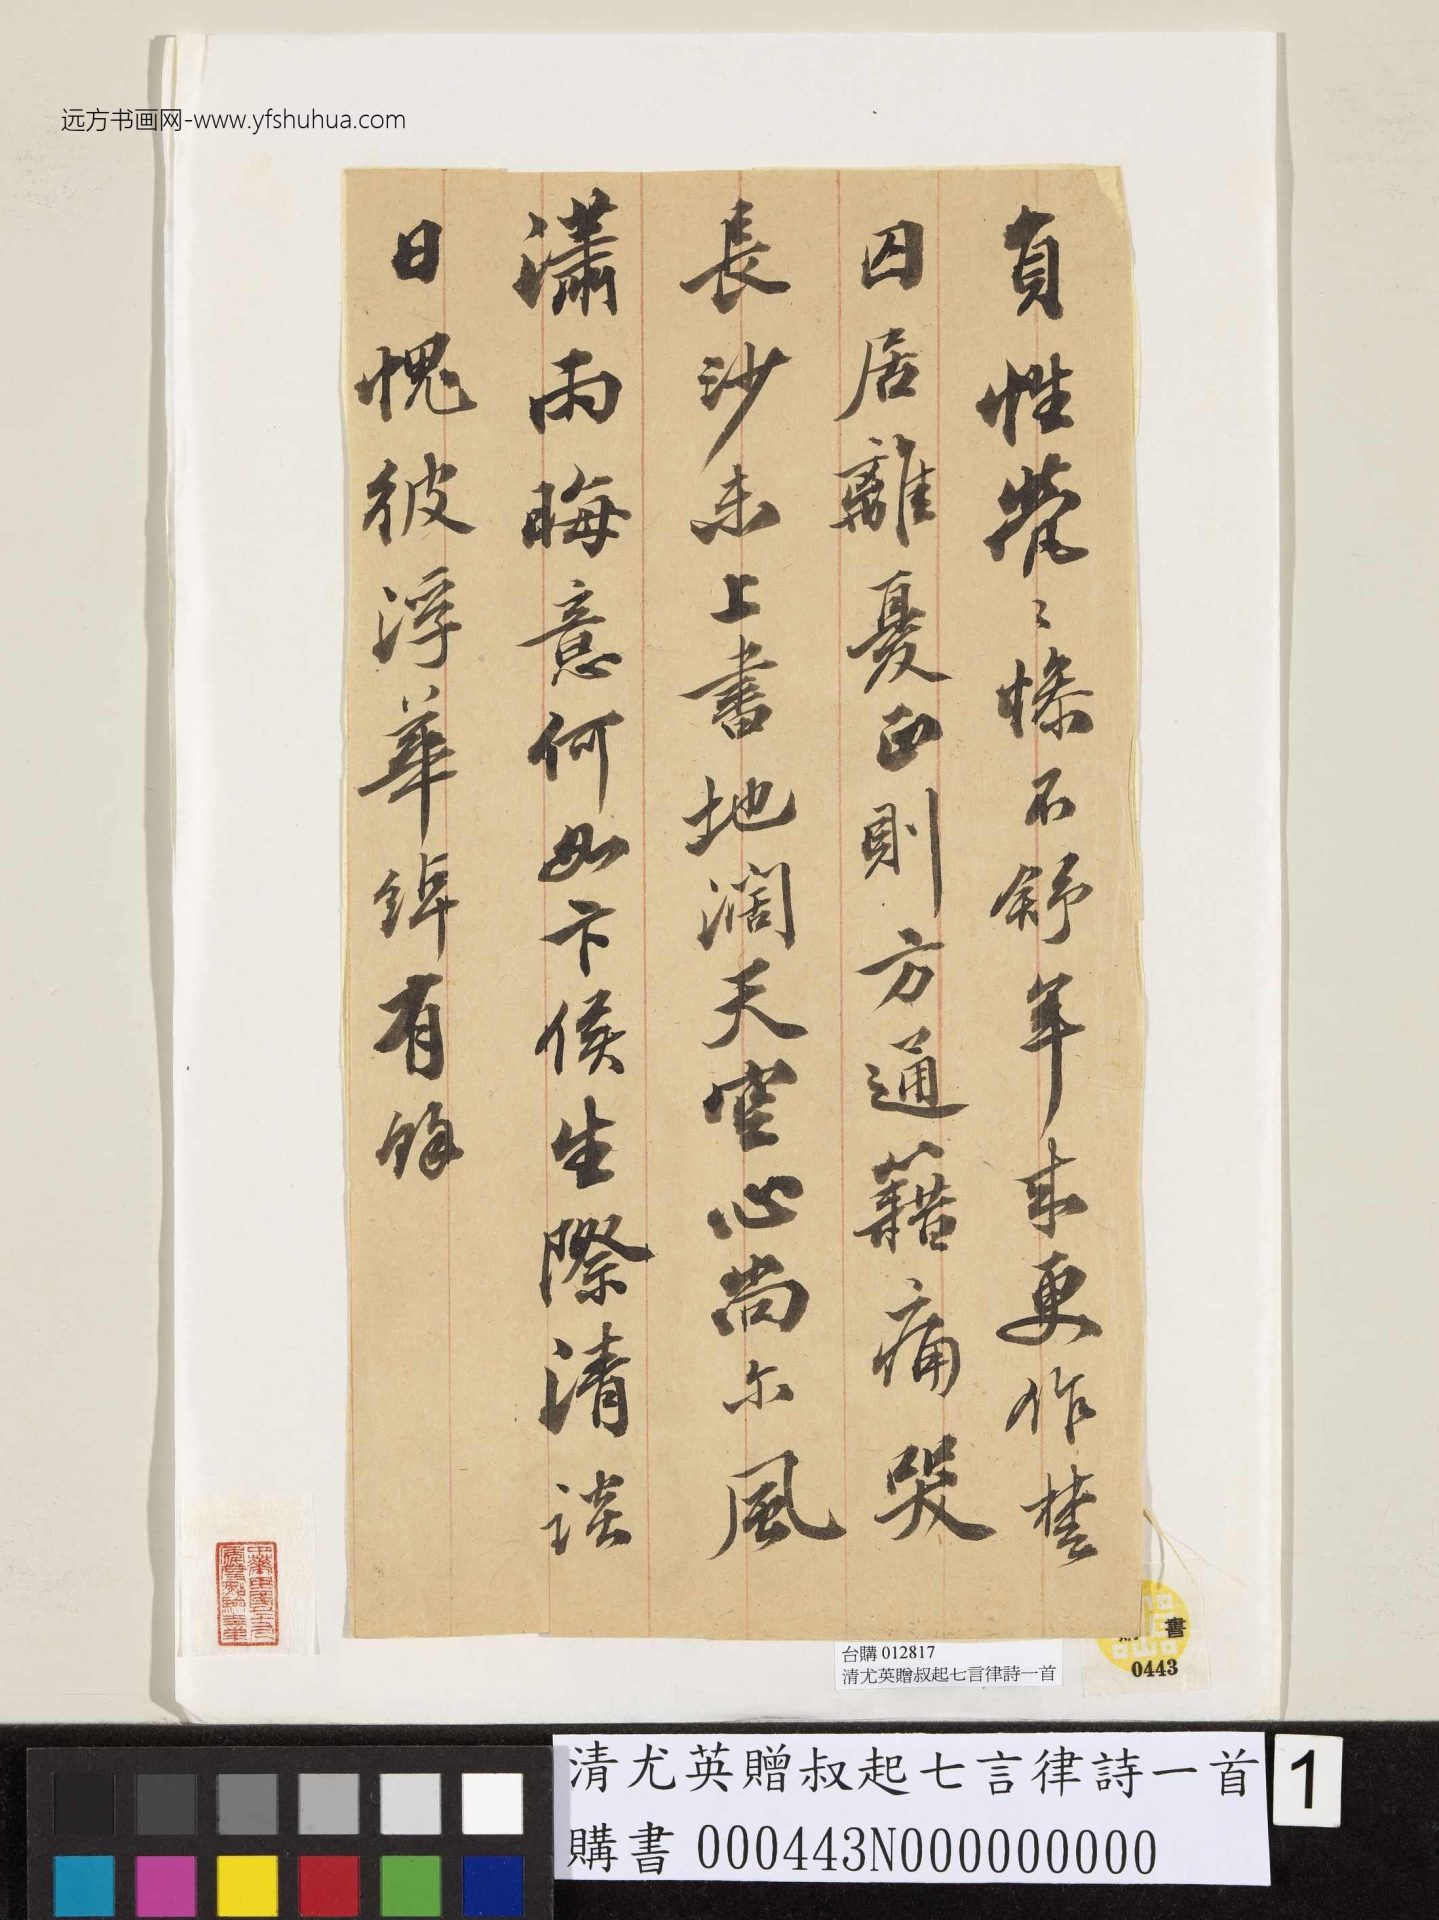 远方书画网-www.yfshuhua.com
負性煢〻慘不舒年来更作楚
囚居離憂正則方通籍痛哭
長沙未上書地濶天空心尚尔風
瀟雨晦意何如卞侯生際清談
日愧彼浮華綽有餘
台購 012817
清尤英贈叔起七言律詩一首
書
0443
清尤英贈叔起七言律詩一首
購書 000443N000000000
1